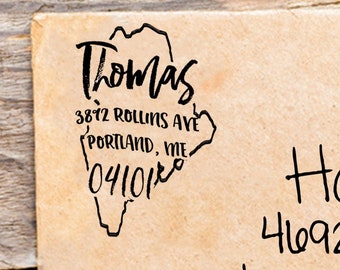 Thomas
3892 ROLLINS AVE
PORTLAND, ME
04101
Ho
4692